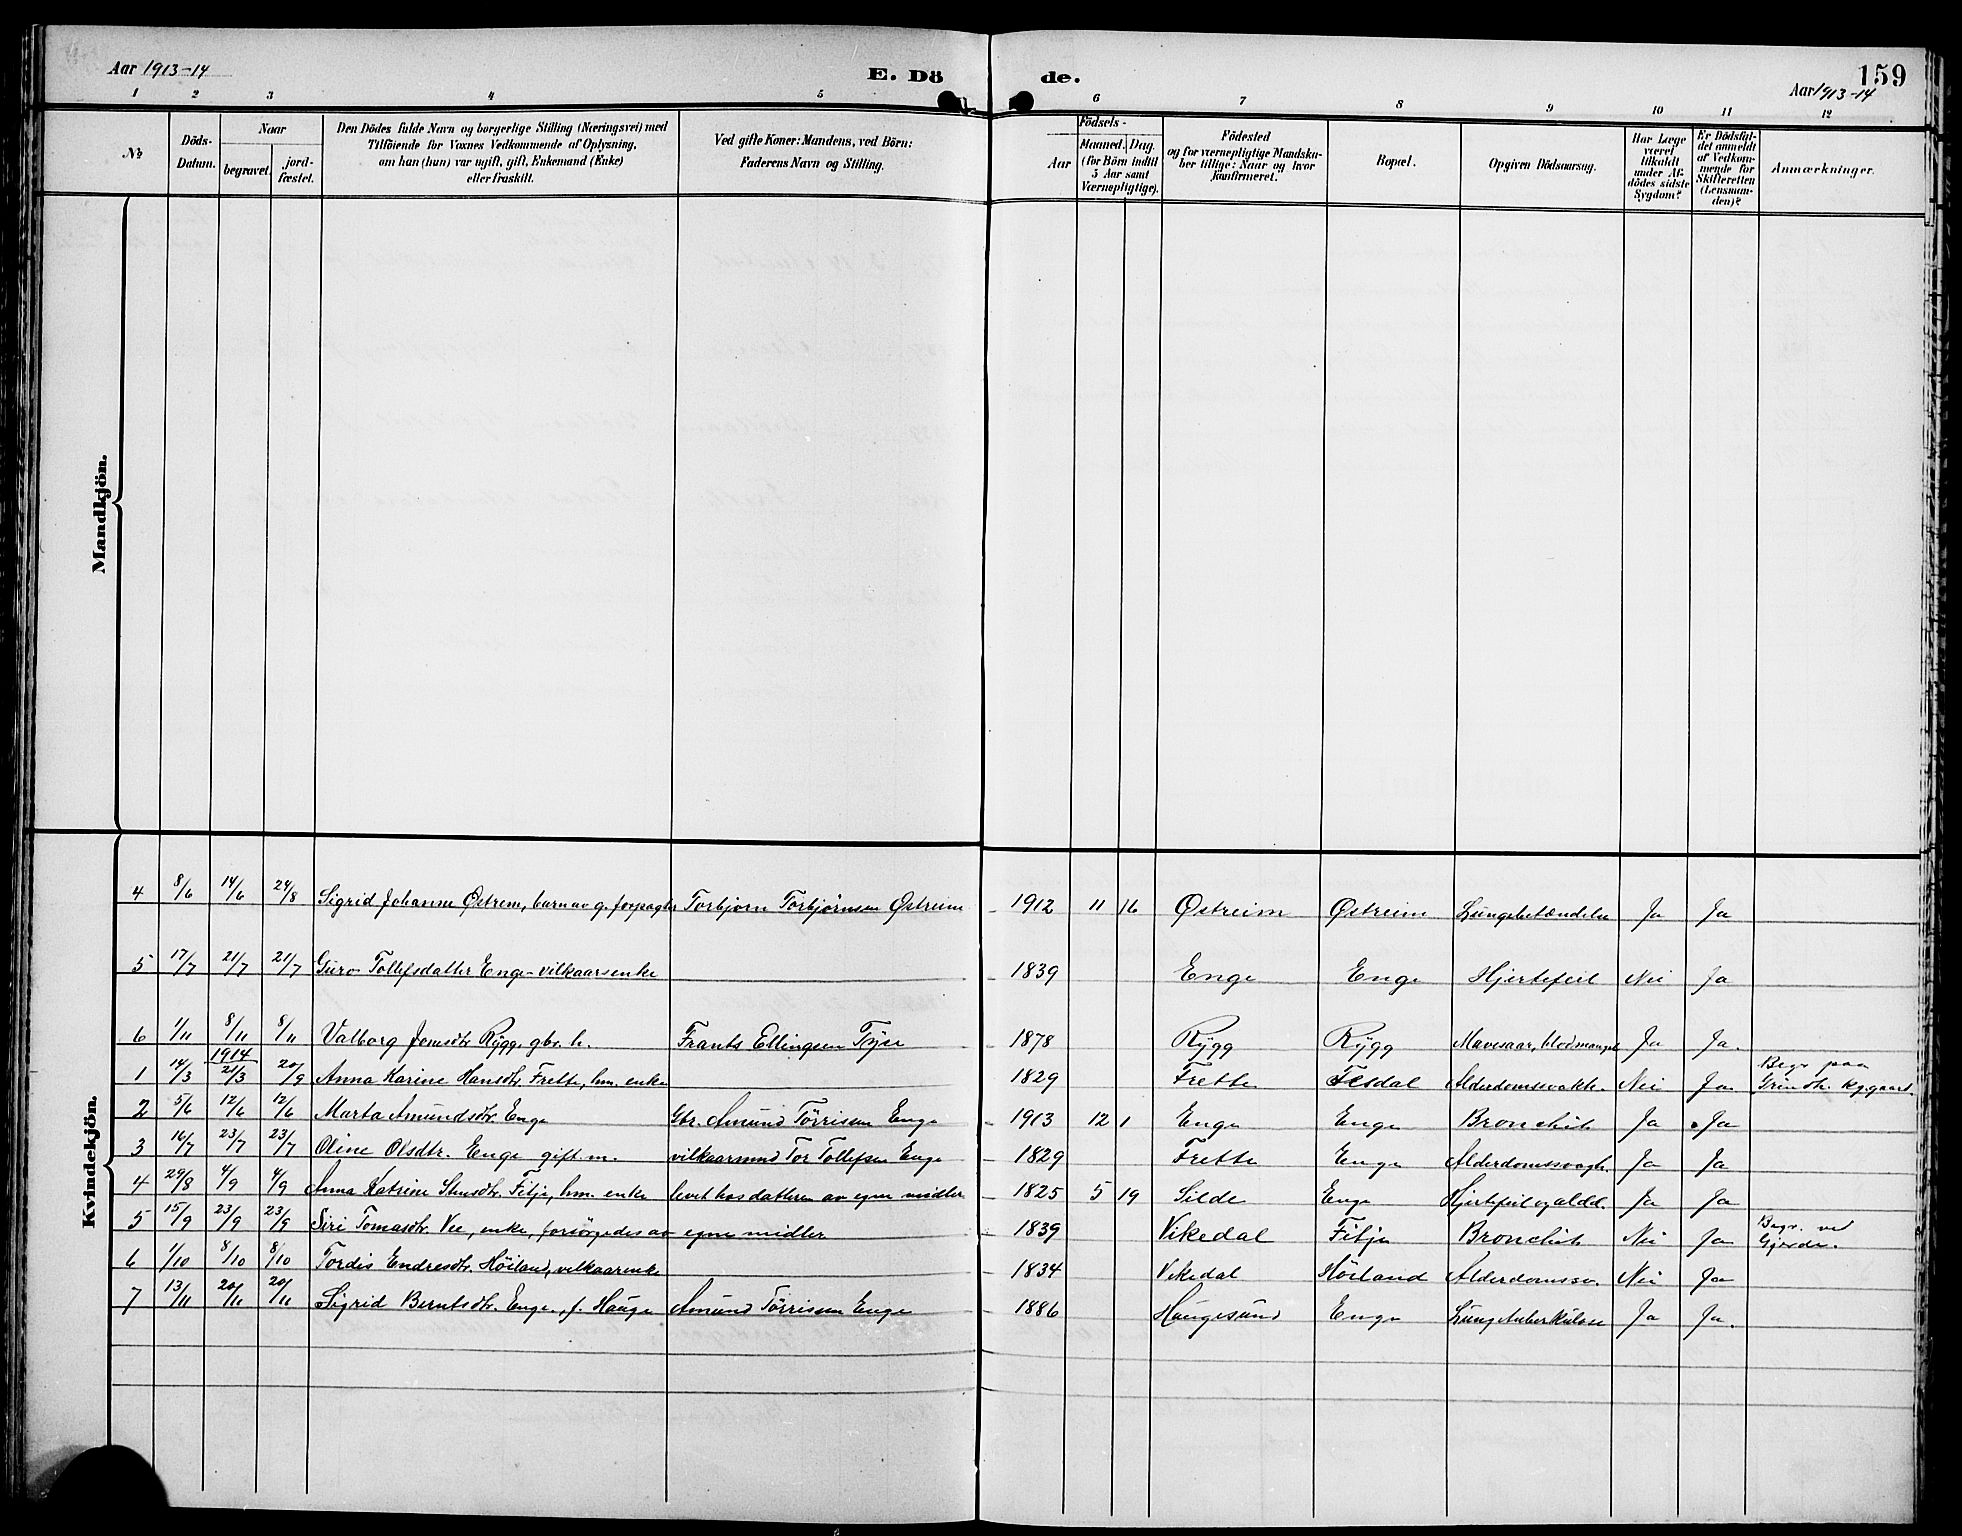 Aar 1913-14
E. Dö
de.
Aar 1913-14
159
1 2 3 4 5 6 7 8 9 10 11 12
№
Döds-Datum.
Naar
begravet.
jord-fæstet.
Den Dödes fulde Navn og borgerlige Stilling (Næringsvei) med
Tilföiende for Voxnes Vedkommende af Oplysning,
om han (hun) var ugift, gift, Enkemand (Enke)
eller fraskilt.
Ved gifte Koner: Mandens, ved Börn:
Faderens Navn og Stilling.
Födsels-
Aar
Maaned. Dag.
(for Börn indtil
5 Aar samt
Værnepligtige).
Födested
og for værnepligtige Mandska-
ber tillige: Naar og hvor
Konfirmeret.
Bopæl.
Opgiven Dödsaarsag.
Har Læge
været
tilkaldt
under Af-
dödes sidste
Sygdom?
Er Dödsfal-
det anmeldt
af Vedkom-
mende for
Skifteretten
(Lensman-
den)?
Anmærkninger.
Mandkjön.
Kvindekjön.
4 8/6 14/6 24/8 Sigrid Johanne Östrem, barn av g. forpagter Torbjorn Torbjörnsen Östreim 1912 11 16 Östreim Östreim Lungebetændelse Ja Ja
5 17/7 21/7 21/7 Guro Tollefsdatter Enge - vilkaarsenke 1839 Enge Enge Hjertefeil Nei Ja
6 1/11 8/11 8/11 Valborg Jensdtr Rygg. gbr. h. Frants Ellingsen 1878 Rygg Rygg Mavesaar, blodmangel Ja Ja.
1914
1 14/3 21/3 20/9 Anna Karine Hansdtr. Frette, hm. enke 1829 Frette Tesdal Alderdomssvakh. Nei Ja Begr paa
2 5/6 12/6 12/6 Marta Amundsdtr. Enge Gbr. Amund Törrisen Enge 1913 12 1 Enge Enge Bronchit Ja Ja
3 16/7 23/7 23/7 Oline Olsdtr. Enge gift m. vilkaarsmand Tor Tollefsen Enge 1829 Frette Enge Alderdomssvagh. Ja Ja
4 29/8 4/9 4/9 Anna Katrine Stensdtr. Fitja, hm. enke levet hos datteren av egne midler 1825 5 19 Silde Enge Hjertefeil og aldd. Ja Ja
5 15/9 23/9 23/9 Siri Tomasdtr. Vee, enke, forsörgedes av egne midler 1839 Vikedal Fitja Bronchit Nei Ja Begr. ved
Gjerde.
6 1/10 8/10 8/10 Tordis Endresdtr. Höiland, vilkaarenke 1834 Vikedal Höiland Alderdomssv. Nei Ja
7 13/11 20/11 20/11 Sigrid Berntsdtr. Enge, f. Hauge Amund Törrisen Enge 1886 Haugesund Enge Lungetuberkulose Ja Ja.